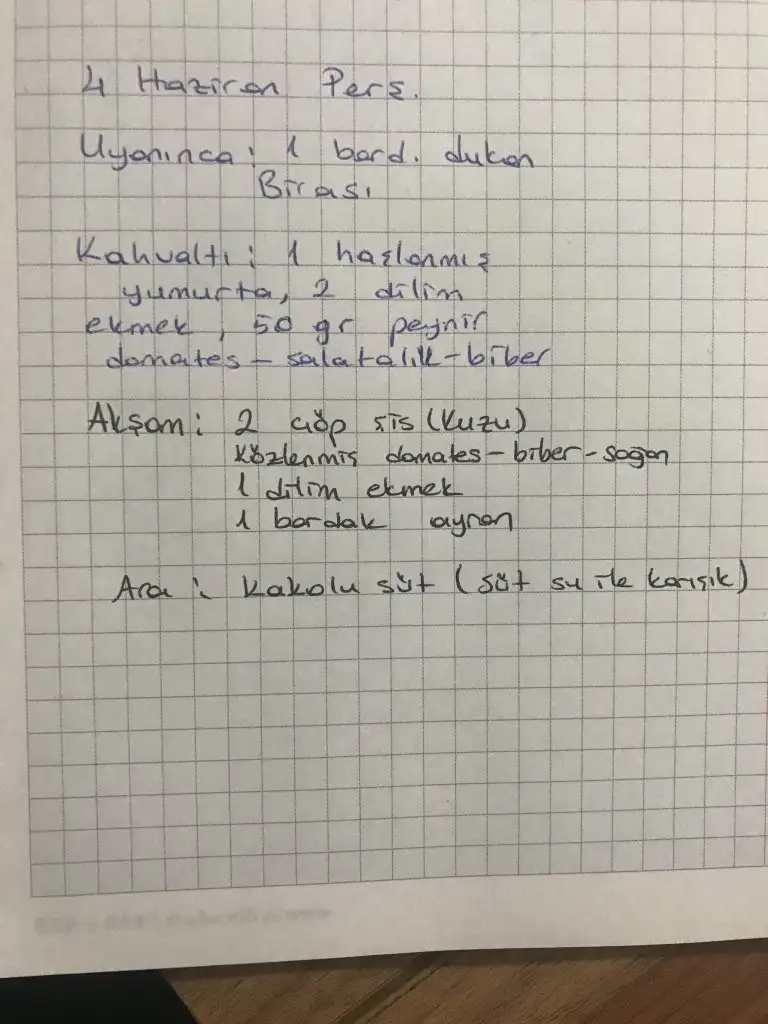 4 Haziran Perş.
Uyanınca: 1 bard. dukan
Birası
Kahvaltı: 1 haşlanmış
yumurta, 2 dilim
ekmek, 50 gr peynir
domates - salatalık - biber
Akşam: 2 çöp şis (kuzu)
közlenmiş domates - biber - soğan
1 dilim ekmek
1 bardak ayran
Ara: Kakolu süt (süt su ile karışık)